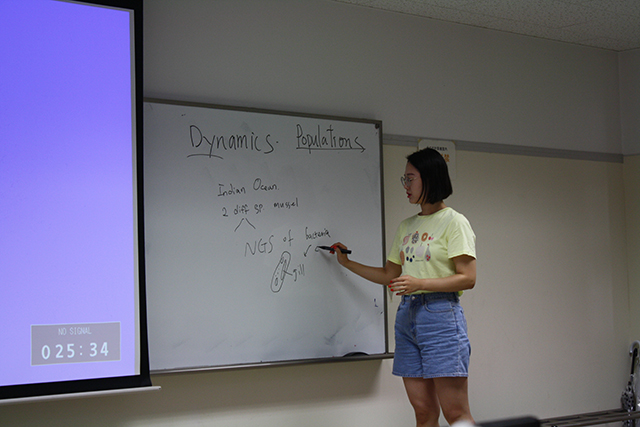 Dynamics. Populations
Indian Ocean
2 diff sp mussel
NGS of bacteria
gill
NO SIGNAL
025:34